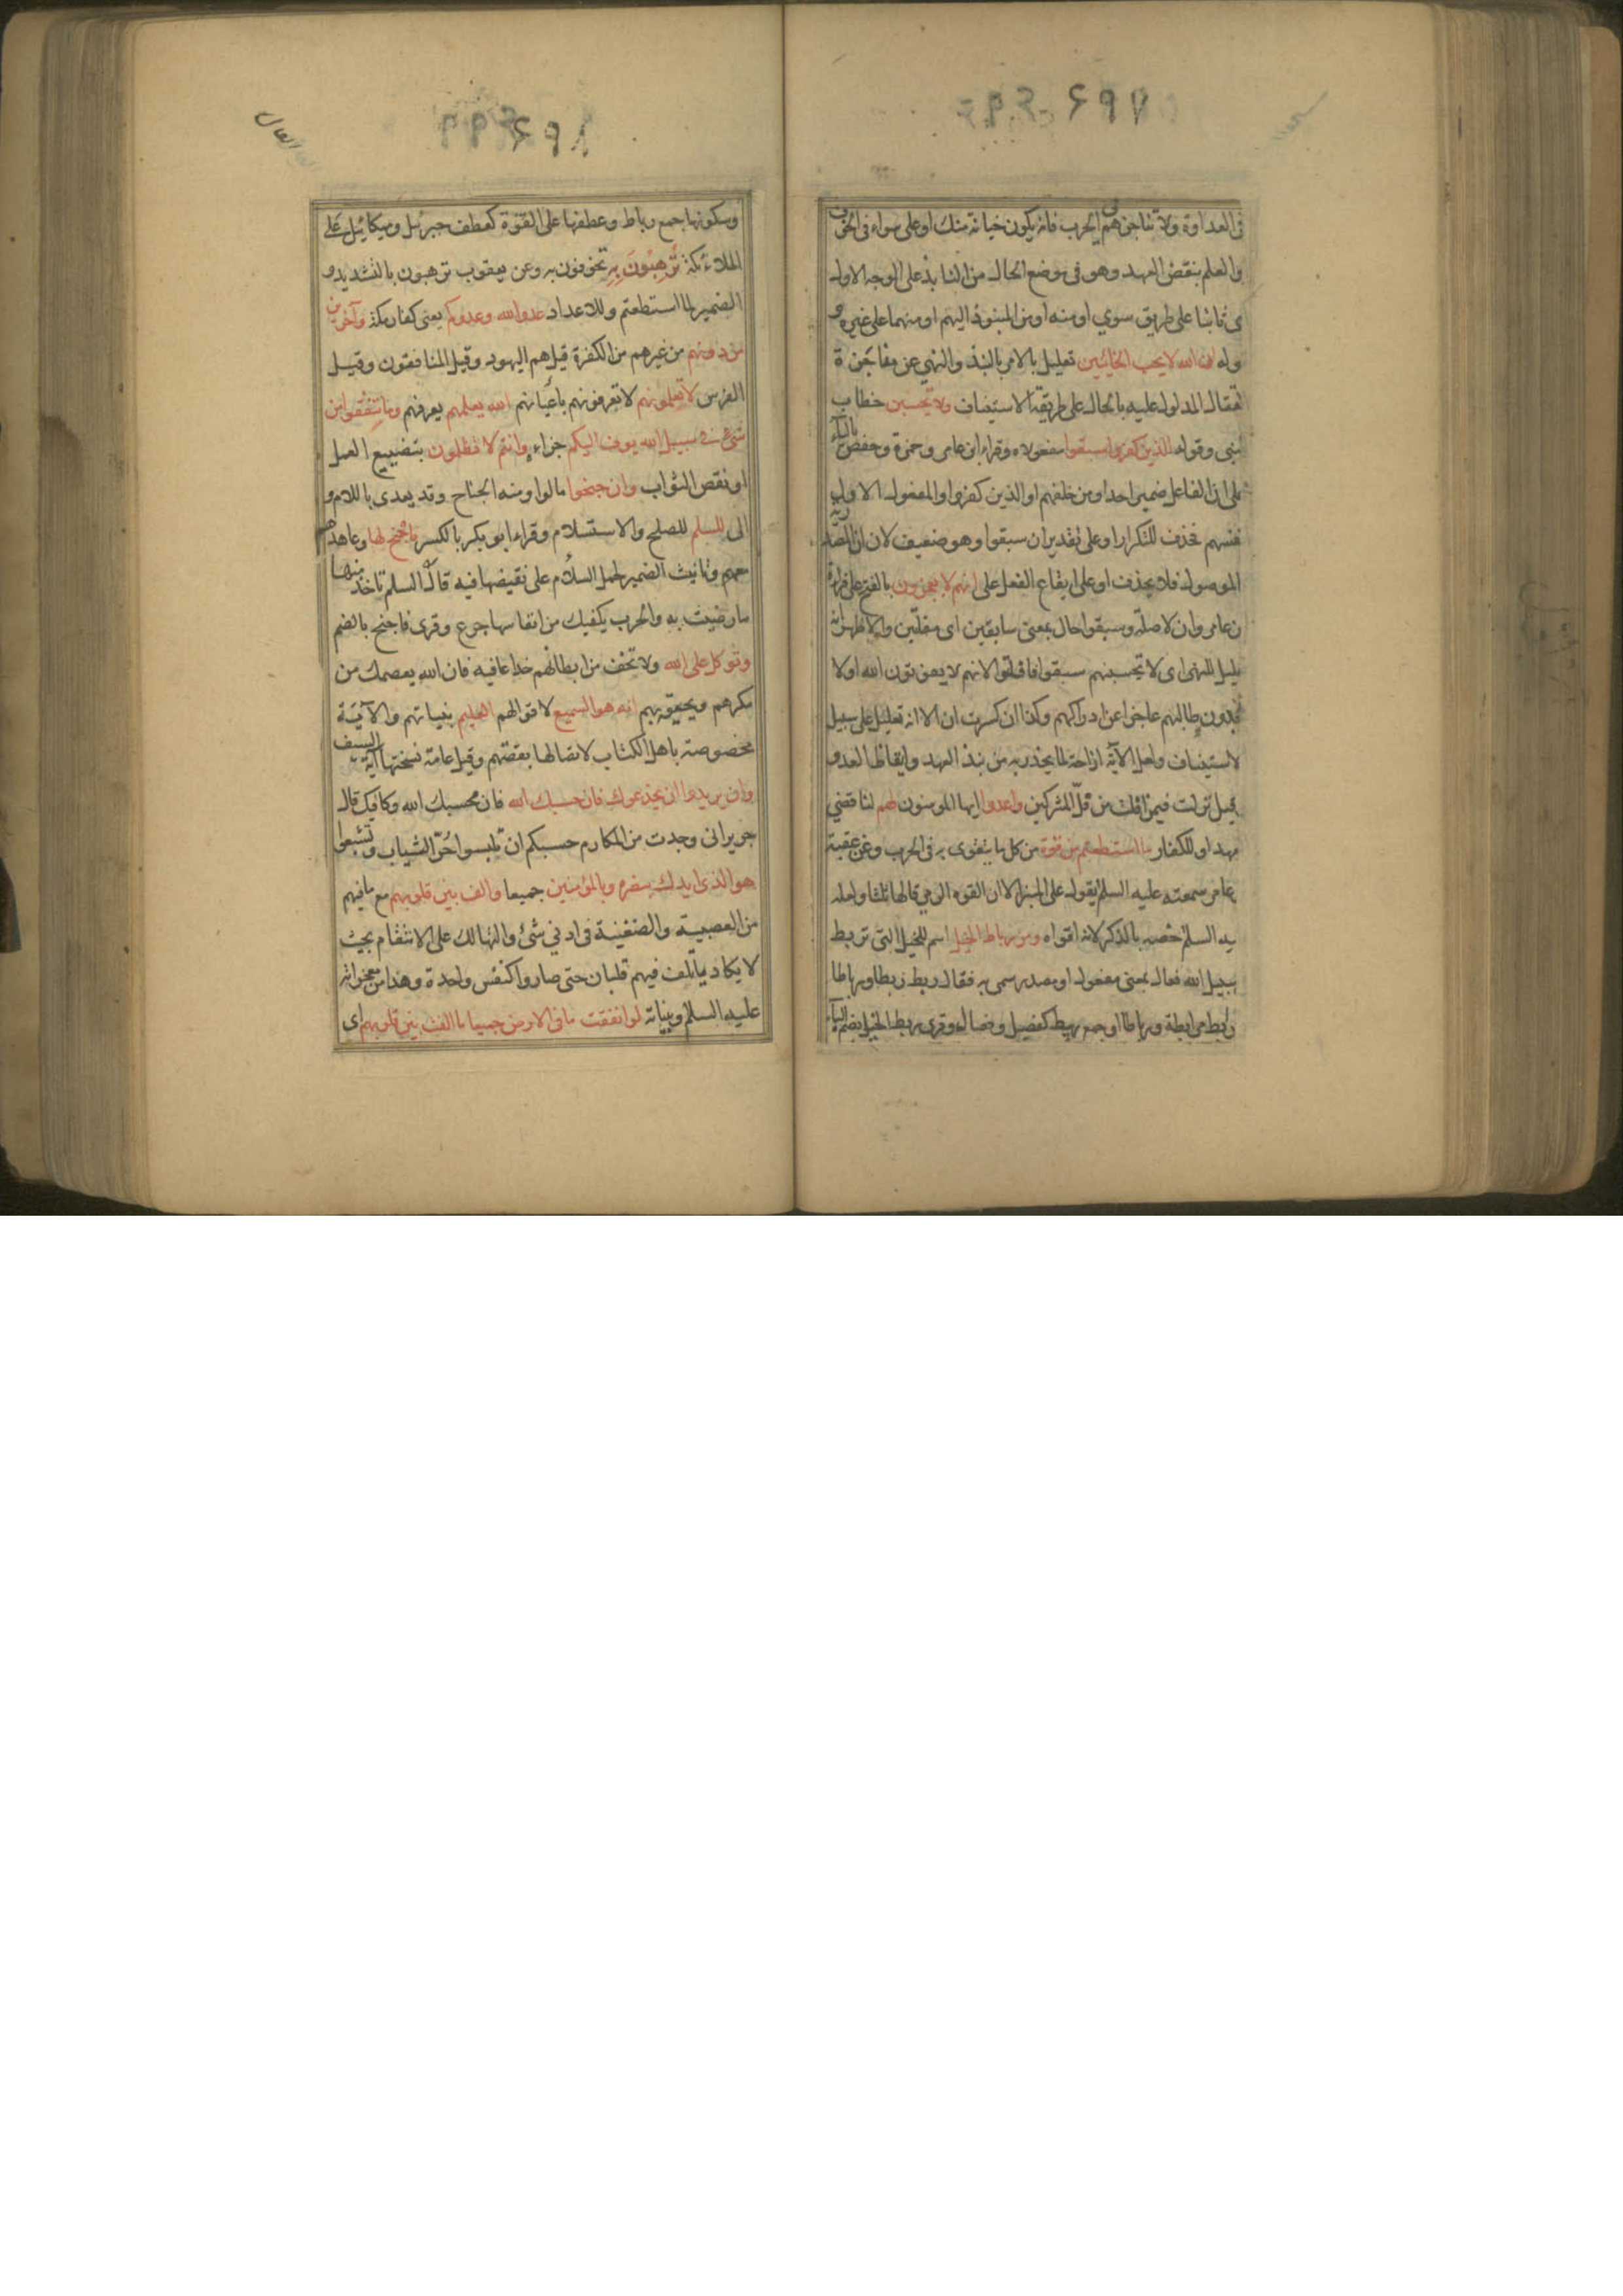 فى العداوة ولا تناجزهم الحرب فانه يكون خيانة منك او على سواء فى الخوف
والعلم بنقض العهد وهو فى موضع الحال من النابذ على الوجه الاول
ى ثابتا على طريق سوي او منه او من المنبوذ اليهم او منهما على غيره و
وله ان الله لا يحب الخائنين تعليل بالامر بالنبذ والنهي عن مفاجزة
لقتال المدلول عليه بالحال على طريقة الاستيناف ولا تحسبن خطاب
لنبى وقوله الذين كفروا سبقوا مفعولاه وقراء ابن عامر وحمزة وحفص بالياء
على ان الفاعل ضمير احد او من خلفهم او الذين كفروا والمفعول الاول
نفسهم فحذف للتكرار او على تقدير ان سبقوا وهو ضعيف لان ان المصدرية
الموصول فلا يحذف او على ايقاع الفعل على انهم لا يعجزون بالفتح على قراءة
بن عامر وان لا صلة وسبقوا حال بمعنى سابقين اى مفلتين والاظهر انه
عليل للنهى اى لا تحسبنهم سبقوا فافلتوا لانهم لا يفوتون الله او لا
يجدون طالبهم عاجزا عن ادراكهم وكذا ان كسرت ان الا انه تعليل على سبيل
لاستيناف ولعل الآية ازاحة لما يحذر به من نبذ العهد وايقاظ العدو
قيل نزلت فيمن افلت من فل المشركين واعدوا ايها المومنون لهم لناقضي
عهد او للكفار ما استطعتم من قوة من كل ما يتقوى به فى الحرب وعن عقبة
عامر سمعته عليه السلم يقول على المنبر الا ان القوه الرمي قالها ثلثا ولعله
يه السلم خصه بالذكر لانه اقواه ومن رباط الخيل اسم للخيل التى تربط
سبيل الله فعال بمعنى مفعول او مصدر سمى به فقال ربط ربطا ورباطا
رابط مرابطة ورباطا او جمع ربيط كفصيل وفصال وقرى ربط الخيل بضم الباء
العال
وسكونها جمع رباط وعطفها على القوة كعطف جبرئيل وميكائيل على
الملائكة ترهبون به تخوفون به وعن يعقوب ترهبون بالتشديد و
الضمير لما استطعتم وللاعداد عدو الله وعدوكم يعنى كفار مكة وآخرين
من دونهم من غيرهم من الكفرة قيل هم اليهود وقيل المنافقون وقيل
الفرس لا تعلمونهم لا تعرفونهم باعيانهم الله يعلمهم يعرفهم وما تنفقوا من
شئ فى سبيل الله يوف اليكم جزاءه وانتم لا تظلمون بتضييع العمل
او نقص الثواب وان جنحوا مالوا ومنه الجناح وقد يعدى باللام و
الى للسلم للصلح والاستسلام وقراء ابو بكر بالكسر فاجنح لها وعاهد
معهم وتانيث الضمير لحمل السلام على نقيضها فيه قال السلم تاخذ منها
ما رضيت به والحرب يكفيك من انفاسها جرع وقرى فاجنح بالضم
وتوكل على الله ولا تخف من ابطانهم خداعا فيه فان الله يعصمك من
مكرهم ويحيقه بهم انه هو السميع لاقوالهم العليم بنياتهم والآية
مخصوصة باهل الكتاب لاتصالها بقصتهم وقيل عامة نسختها آية السيف
وان يريدوا ان يخدعوك فان حسبك الله فان محسبك الله وكافيك قال
جرير انى وجدت من المكارم حسبكم ان تلبسوا حر الثياب وتشبعوا
هو الذى ايدك بنصره وبالمؤمنين جميعا والف بين قلوبهم مع ما فيهم
من العصبية والضغينة فى ادني شئ والتهالك على الانتقام بحيث
لا يكاد ياتلف فيهم قلبان حتى صاروا كنفس واحدة وهذا من معجزاته
عليه السلم وبيانه لو انفقت ما فى الارض جميعا ما الفت بين قلوبهم اى